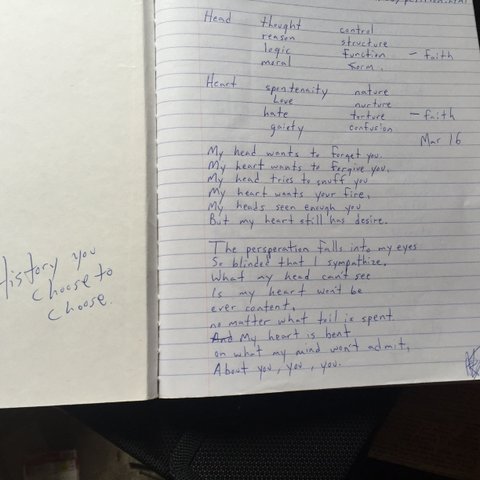 History you
choose to
choose.
Head thought control
reason structure
logic function - faith
moral form.
Heart spontennity nature
love nurture
hate torture - faith
gaiety confusion
Mar 16
My head wants to forget you.
My heart wants to forgive you.
My head tries to snuff you
My heart wants your fire.
My heads seen enough you
But my heart still has desire.
The persperation falls into my eyes
So blinded that I sympathize.
What my head can't see
Is my heart won't be
ever content,
no matter what toil is spent.
And My heart is bent
on what my mind won't admit,
About you, you, you.